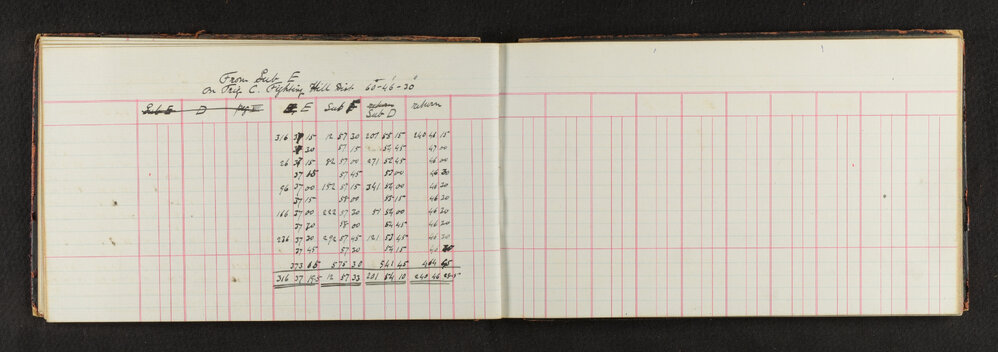 From Sub E
On Trig C. Fighting Hill Dist 60-46-30
Sub E D E Sub F return Sub D return
316 37 15 12 57 30 201 55 15 240 46 15
30 57 15 54 45 47 00
26 37 15 82 57 00 271 52 45 46 00
37 57 45 53 00 46 30
96 37 00 152 57 15 341 54 00 46 30
37 15 58 00 55 15 46 30
166 37 00 222 57 30 51 54 00 46 30
37 30 58 00 54 45 46 30
236 37 30 292 57 45 121 53 45 46 30
37 45 57 30 54 15 46 30
373 575 30 541 45 464
316 37 19.5 12 57 33 201 54 10 240 46